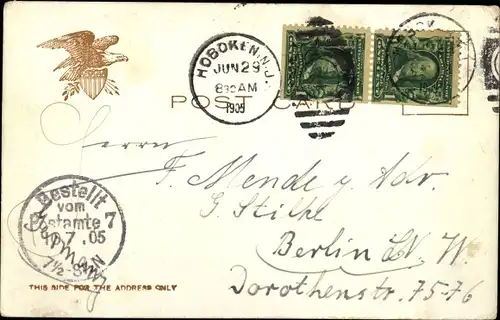 HOBOKEN, N.J.
JUN 29
830 AM
1905
POST CARD
Herrn
F. Mende p. Adr.
G. Stilke
Berlin N. W.
Dorothenstr. 75-76
Germany
Bestellt
vom
Postamte 7
7.05
7½-8¼N
THIS SIDE FOR THE ADDRESS ONLY